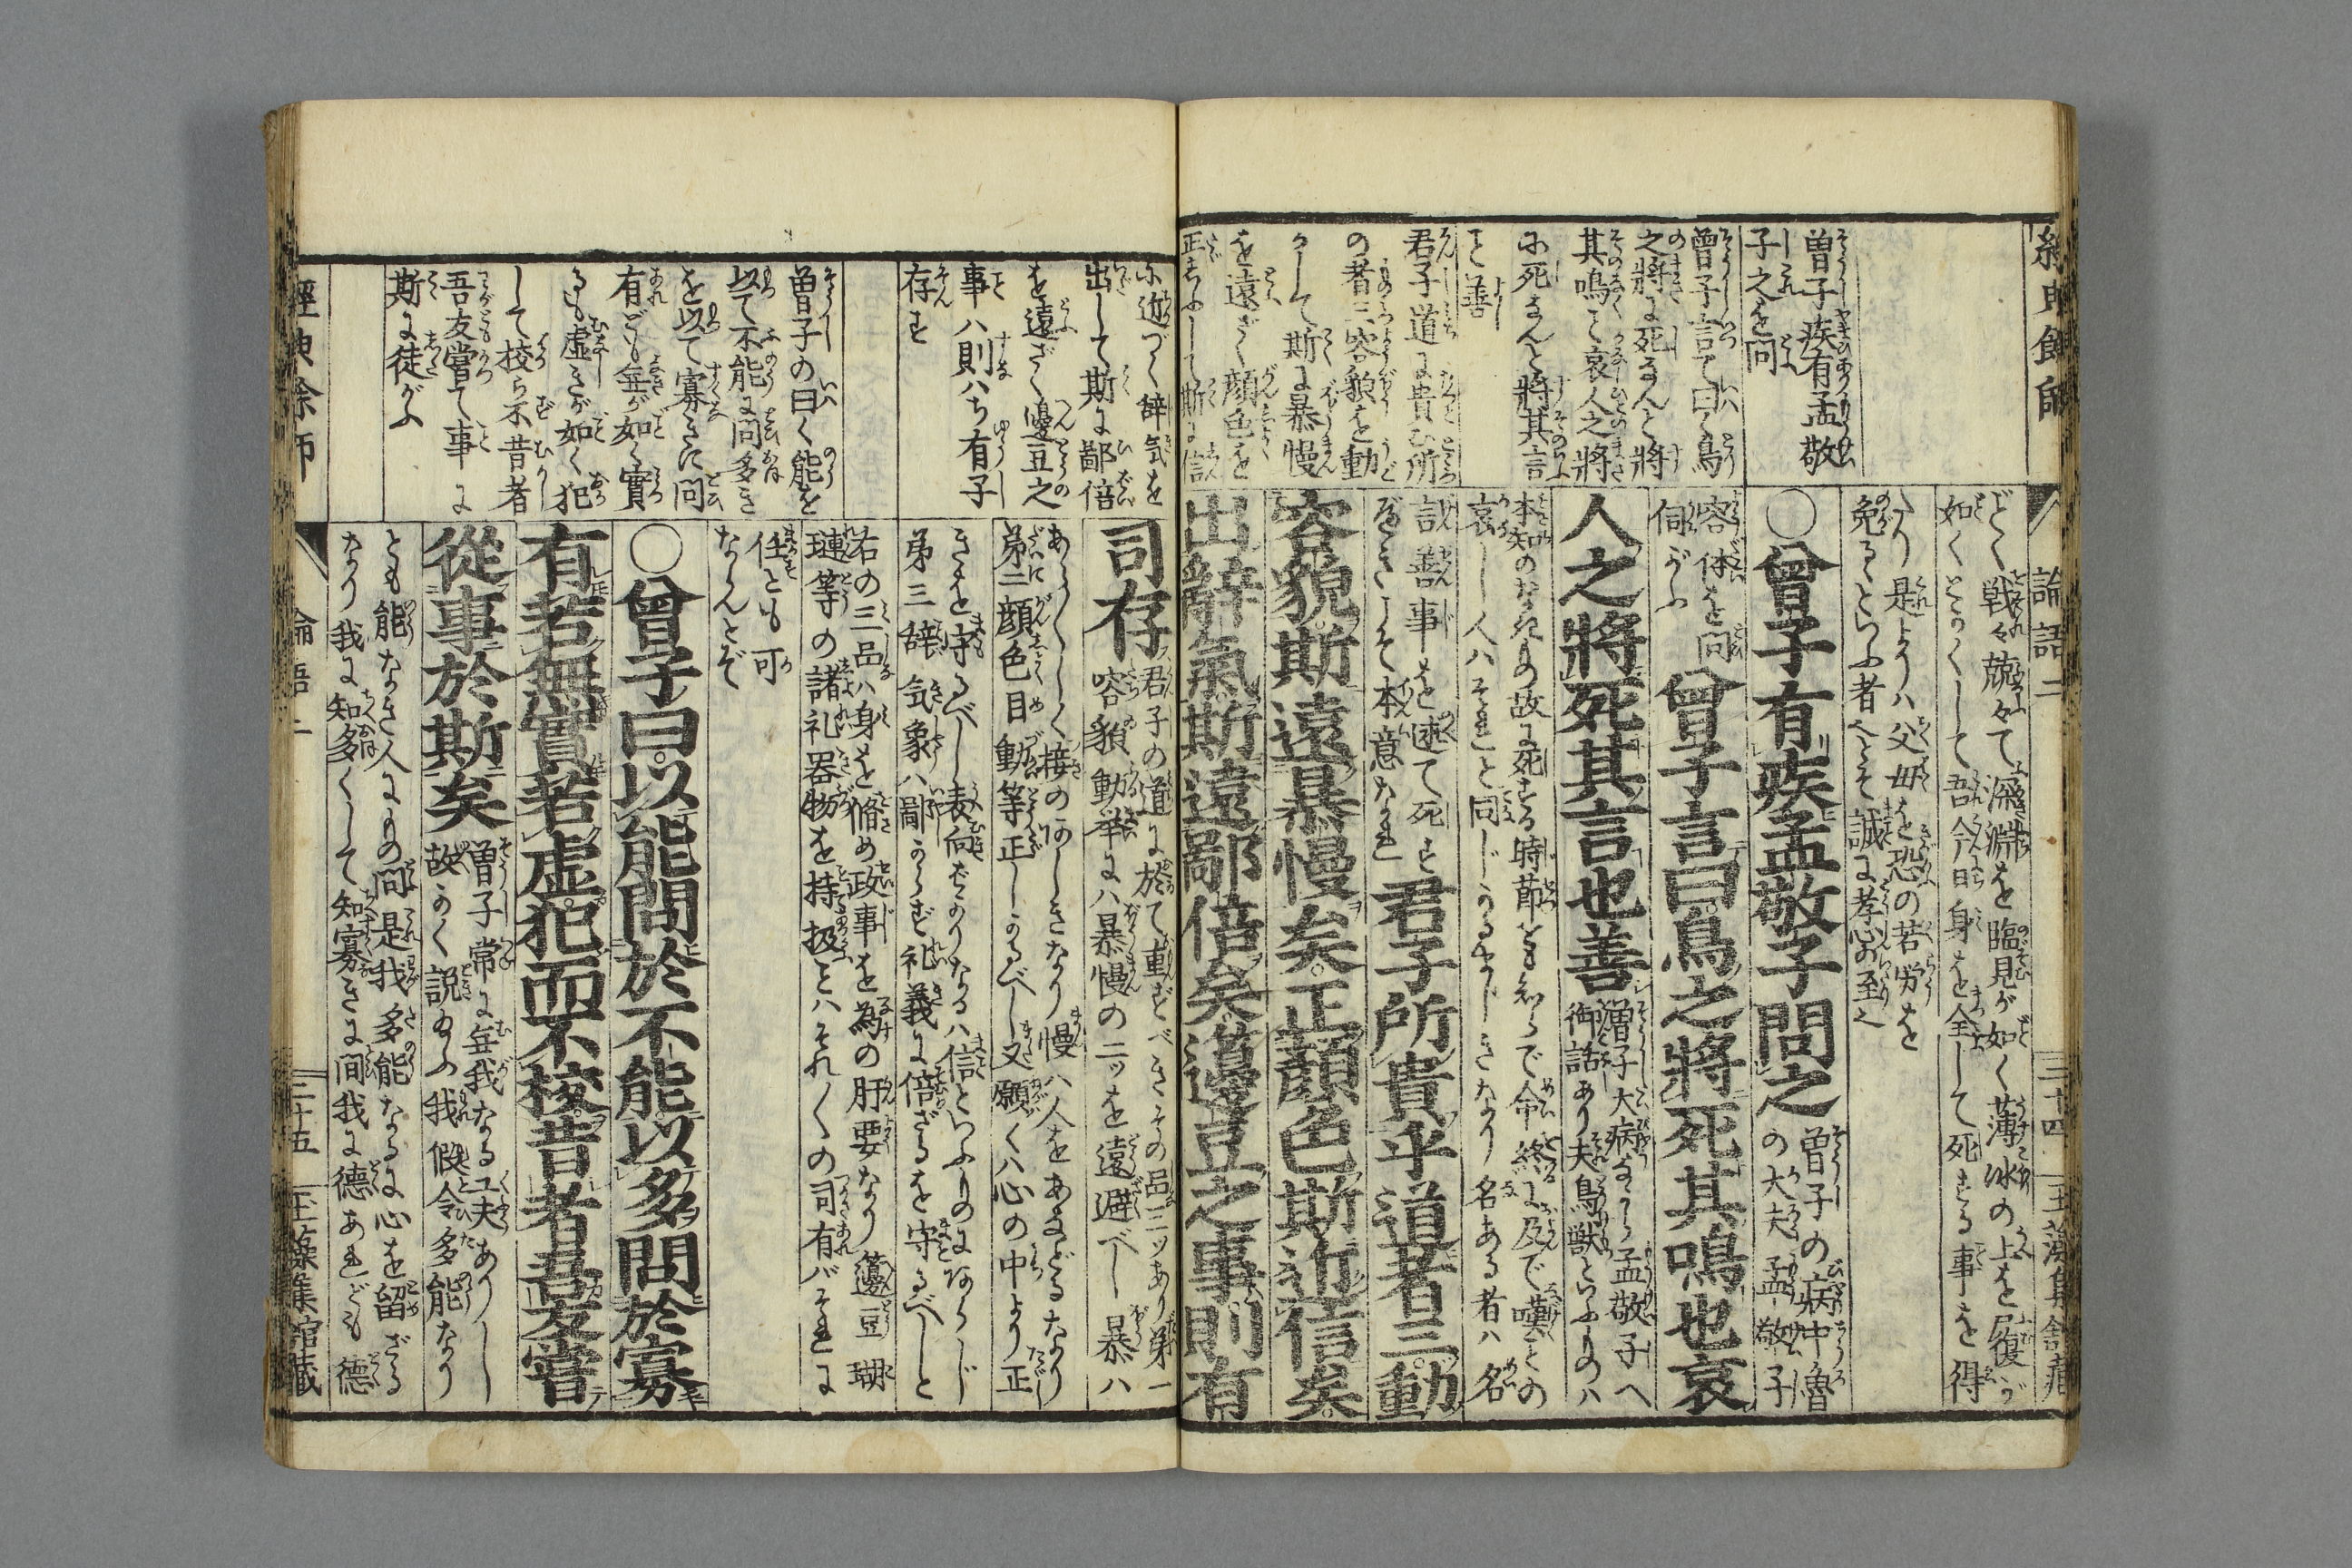 論語二
三十四
どく戦々兢々て深淵を臨見が如く薄冰の上を履が
如くとかくして吾今日身を全して死する事を得
たり是よりハ父母を恐の若労を
免るといふ者へとそ誠に孝心の至也
曽子疾有孟敬
子之を問
○曾子有疾孟敬子問之
曽子の病中魯
の大夫孟敬子
容体を問
伺がふ
曽子言て曰く鳥
之將に死なんと將
其鳴こ哀人之將
に死なんと將其言
こと善
曾子言曰鳥之將死其鳴也哀
人之將死其言也善
曽子大病ながら孟敬子へ
御話あり夫鳥獣といふものハ
本知のなきもの故に死する時節をも知らで命終に及で嘆との
哀し人ハそれと同じかるまじきなり名ある者ハ名
言善事を述て死す
べきこそ本意なれ
君子道に貴む所
の者三容貌を動
かして斯に暴慢
を遠ざく顔色を
正しふして斯に信
君子所貴乎道者三動
容貌斯遠暴慢矣正顔色斯近信矣
出辭氣斯遠鄙倍矣籩豆之事則有
に近づく辭気を
出して斯に鄙倍
を遠ざく籩豆之
事ハ則ハち有子
存す
司存
君子の道に於て重ずべきその品三ツあり第一
容貌動挙にハ暴慢の二ッを遠避べし暴ハ
あら〳〵しく接のあしきなり慢ハ人をあなどるなり
第二顔色目動等正しかるべし又願くハ心の中より正
きを守るべし表向ばかりなるハ信といふものにあらじ
第三辞気象ハ鄙からず礼義に倍ざるを守るべしと
右の三品ハ身を脩め政事を為の肝要なり籩豆瑚
璉等の諸礼器物を持扱とハそれ〳〵の司有バそれに
任とも可
なんとぞ
曽子の曰く能を
以て不能に問多き
を以て寡きに問
有ども無が如く實
るも虚きが如く犯
して校ら不昔者
吾友嘗て事に
斯に從がふ
○曾子曰以能問於不能以多問於寡
有若無實若虚犯而不校昔者吾友嘗
從事於斯矣
曽子常に無我なる工夫ありし
故かく説給ふ我假令多能なり
とも能なき人にもの問是我多能なるに心を留ざる
なり我に知多くして知寡きに問我に德あれども德
經典余師
論語二
三十五
玉藻集館藏